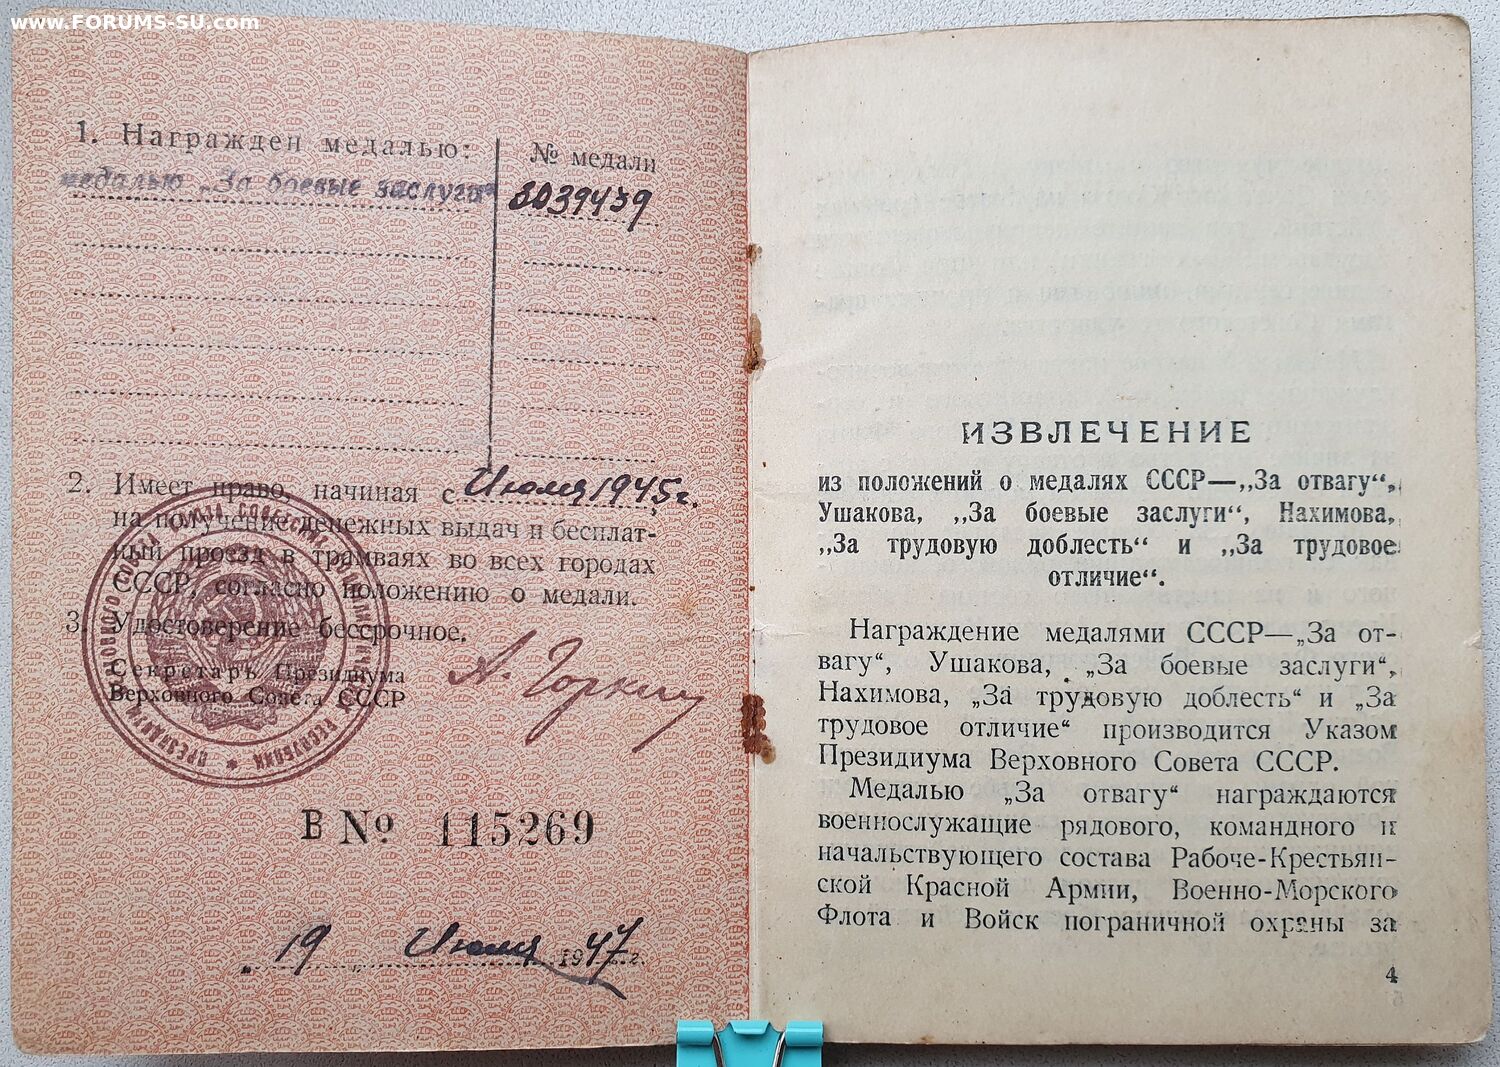 www.FORUMS-SU.com
1. Награжден медалью:
№ медали
медалью „За боевые заслуги“
3039439
2. Имеет право, начиная с Июля 1945 г.
на получение денежных выдач и бесплат-
ный проезд в трамваях во всех городах
СССР, согласно положению о медали.
3. Удостоверение бессрочное.
Секретарь Президиума
Верховного Совета СССР
А. Горкин
В № 115269
„ 19 „ Июля 1947 г.
ИЗВЛЕЧЕНИЕ
из положений о медалях СССР—„За отвагу“,
Ушакова, „За боевые заслуги“, Нахимова,
„За трудовую доблесть“ и „За трудовое
отличие“.
Награждение медалями СССР—„За от-
вагу“, Ушакова, „За боевые заслуги“,
Нахимова, „За трудовую доблесть“ и „За
трудовое отличие“ производится Указом
Президиума Верховного Совета СССР.
Медалью „За отвагу“ награждаются
военнослужащие рядового, командного и
начальствующего состава Рабоче-Крестьян-
ской Красной Армии, Военно-Морского
Флота и Войск пограничной охраны за
4